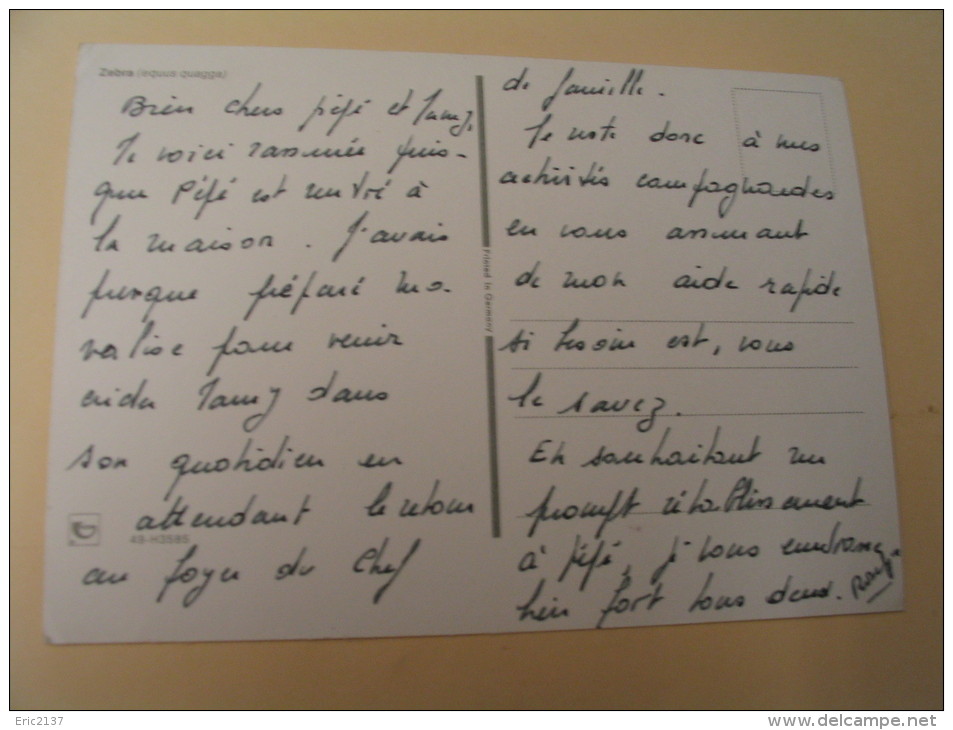 Zebra (equus quagga)
Bien chers pépé et Tamy,
Me voici rassurée puis-
que Pépé est rentré à
la maison. J'avais
presque préparé ma
valise pour venir
aider Tamy dans
son quotidien en
attendant le retour
au foyer du Chef
48-H3585
Printed in Germany
de famille.
Je reste donc à mes
activités campagnardes
en vous assurant
de mon aide rapide
si besoin est, vous
le savez.
En souhaitant un
prompt rétablissement
à Pépé, je vous embrasse
bien fort tous deux.
Eric2137
www.delcampe.net